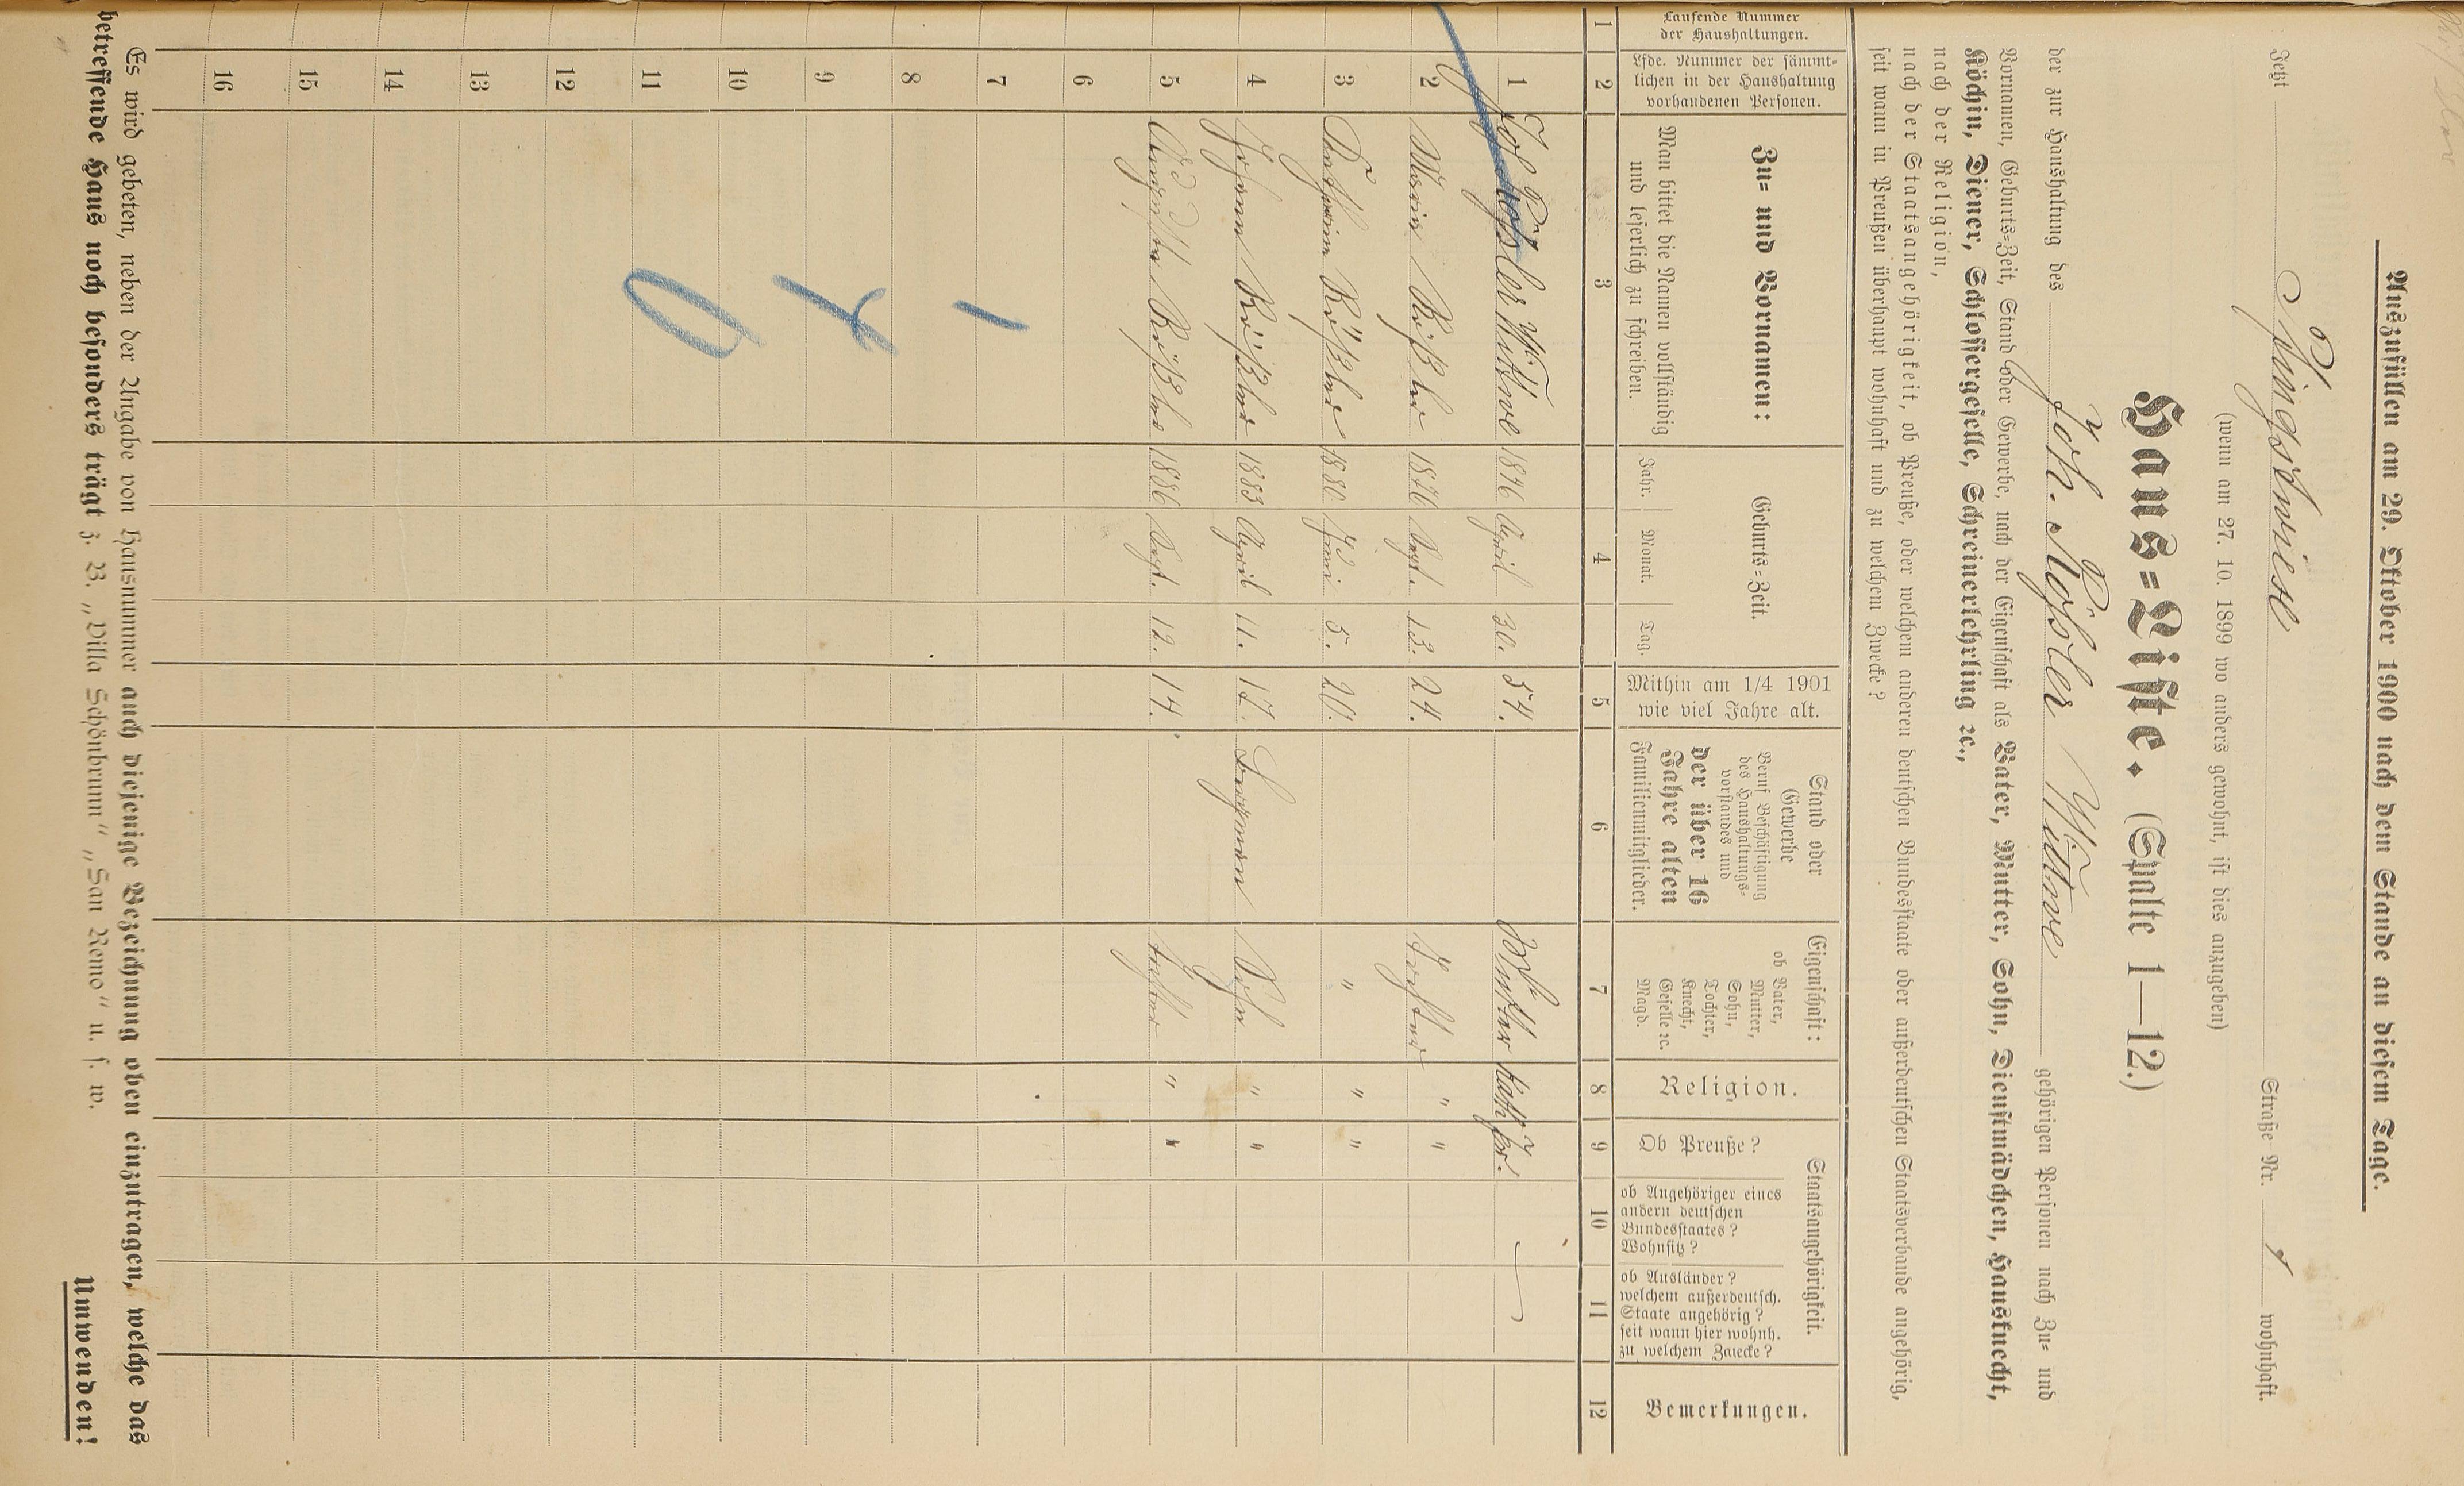 Auszufüllen am 29. Oktober 1900 nach dem Stande an diesem Tage.
Jetzt Pfingstwiese Straße Nr. 1 wohnhaft.
(wenn am 27. 10. 1899 wo anders gewohnt, ist dies anzugeben)
Haus=Liste. (Spalte 1—12.)
der zur Haushaltung des Joh. Rößler Wittwe gehörigen Personen nach Zu= und
Vornamen, Geburts=Zeit, Stand oder Gewerbe, nach der Eigenschaft als Vater, Mutter, Sohn, Dienstmädchen, Hausknecht,
Köchin, Diener, Schlossergeselle, Schreinerlehrling ꝛc.,
nach der Religion,
nach der Staatsangehörigkeit, ob Preuße, oder welchem anderen deutschen Bundesstaate oder außerdeutschen Staatsverbande angehörig,
seit wann in Preußen überhaupt wohnhaft und zu welchem Zwecke?
Laufende Nummer
der Haushaltungen.
Lfde. Nummer der sämmt-
lichen in der Haushaltung
vorhandenen Personen.
Zu= und Vornamen:
Man bittet die Namen vollständig
und leserlich zu schreiben.
Geburts=Zeit.
Jahr. Monat. Tag.
Mithin am 1/4 1901
wie viel Jahre alt.
Stand oder
Gewerbe
Beruf Beschäftigung
des Haushaltungs-
vorstandes und
der über 16
Jahre alten
Familienmitglieder.
Eigenschaft:
ob Vater,
Mutter,
Sohn,
Tochter,
Knecht,
Geselle ꝛc.
Magd.
Religion.
Staatsangehörigkeit.
Ob Preuße?
ob Angehöriger eines
andern deutschen
Bundesstaates?
Wohnsitz?
ob Ausländer?
welchem außerdeutsch.
Staate angehörig?
seit wann hier wohnh.
zu welchem Zwecke?
Bemerkungen.
1 2 3 4 5 6 7 8 9 10 11 12
1 Joh Rößler Wittwe 1846 April 30. 54. Mutter Kath Pr.
2 Maria Rößler 1876 Sept. 13. 24. Tochter " "
3 Rößler 1880 Juni 5. 20. " " "
4 Johann Rößler 1883 April 11. 17. Sohn " "
5 Rößler 1886 Sept. 12. 14. Tochter " "
6
7
8
9
10
11
12
13
14
15
16
1
4
0
Es wird gebeten, neben der Angabe von Hausnummer auch diejenige Bezeichnung oben einzutragen, welche das
betreffende Haus noch besonders trägt z. B. „Villa Schönbrunn" „San Remo" u. s. w.
Umwenden!